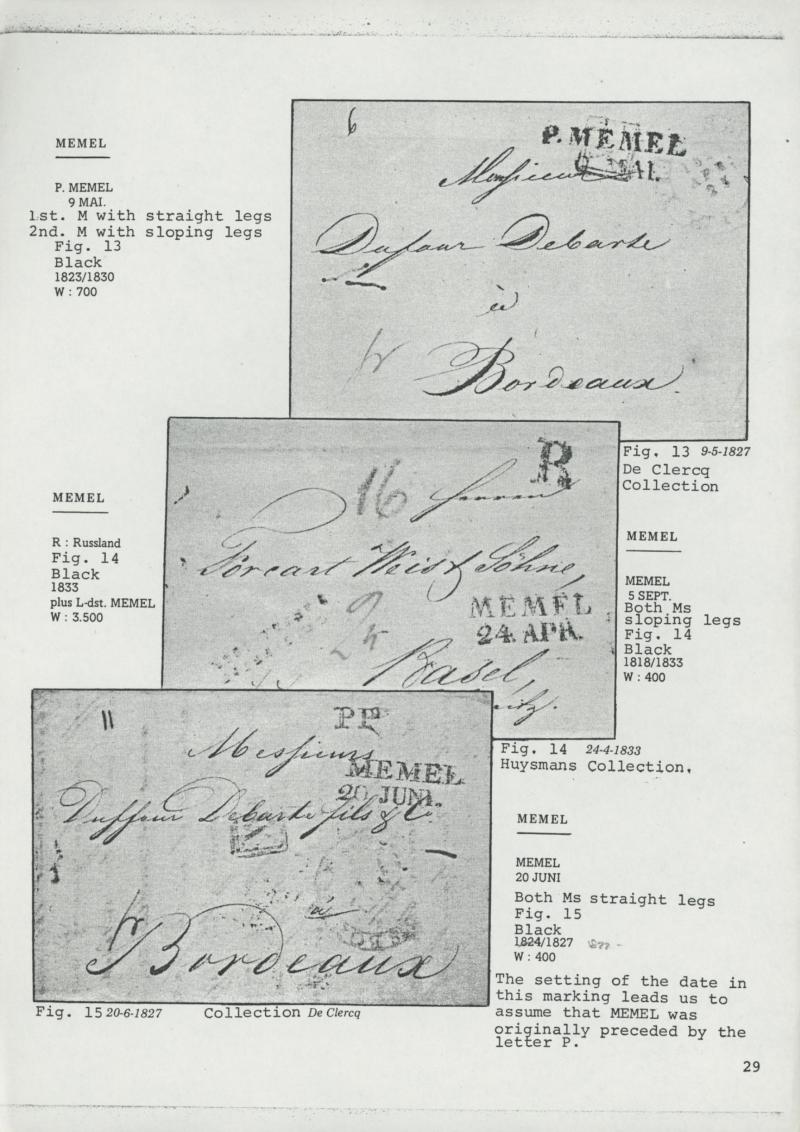 MEMEL
P. MEMEL
9 MAI.
1st. M with straight legs
2nd. M with sloping legs
Fig. 13
Black
1823/1830
W : 700
6
P. MEMEL
9 MAI.
Monsieur
Dufour Debarte
à
Bordeaux.
Fig. 13 9-5-1827
De Clercq
Collection
MEMEL
R : Russland
Fig. 14
Black
1833
plus L-dst. MEMEL
W : 3.500
R
16
Herren
Forcart Weis & Söhne,
MEMEL
24. APR.
Basel,
Fig. 14 24-4-1833
Huysmans Collection.
MEMEL
MEMEL
5 SEPT.
Both Ms
sloping legs
Fig. 14
Black
1818/1833
W : 400
11
PP
Messieurs
MEMEL
20 JUNI.
Duffour Debarte fils & Co.
à
Bordeaux
Fig. 15 20-6-1827 Collection De Clercq
MEMEL
MEMEL
20 JUNI
Both Ms straight legs
Fig. 15
Black
1824/1827
W : 400
The setting of the date in
this marking leads us to
assume that MEMEL was
originally preceded by the
letter P.
29